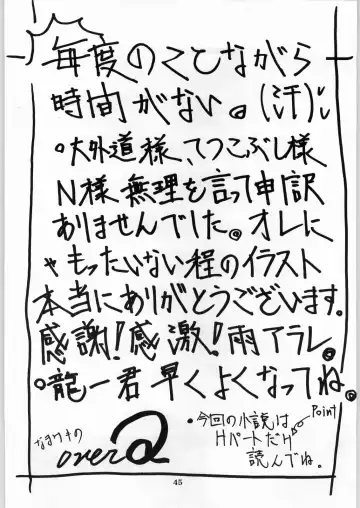 毎度のことながら
時間がない。(汗)
○大外道様、てつこぶし様
N様 無理を言って申し訳
ありませんでした。オレに
ゃもったいない程のイラスト
本当にありがとうございます。
感謝!感激!雨アラレ。
○龍一君早くよくなってね。
なまけもの
over Q
・今回の小説は
HパートだけH
読んでね。
Point
45